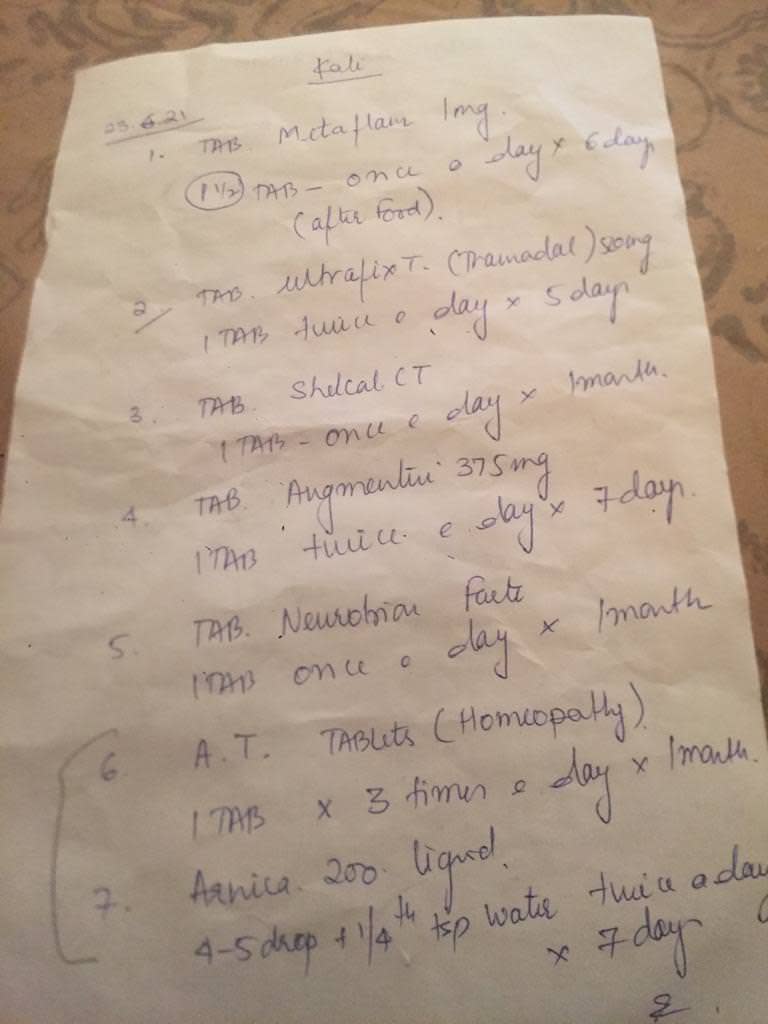 Kali
23.6.21
1. TAB. Metaflam 1mg.
1 1/2 TAB - once a day x 6 days
(after Food).
2 TAB. Ultrafix T. (Tramadal)
1 TAB twice a day x 5 days
3. TAB. Shelcal CT
1 TAB - once a day x 1 month.
4. TAB. Augmentin 375mg
1 TAB twice a day x 7 days.
5. TAB. Neurobion Forte
1 TAB once a day x 1 month
6. A.T. TABlets (Homeopathy)
1 TAB x 3 times a day x 1 month.
7. Arnica. 200. liquid.
4-5 drop + 1/4th tsp water twice a day
x 7 days